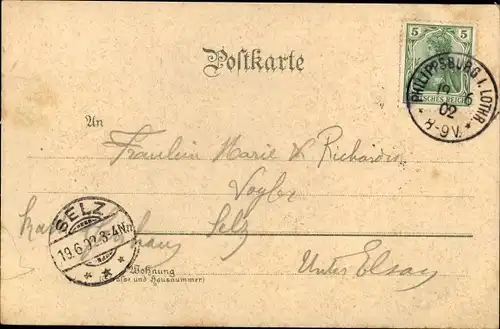 Postkarte
5 5
DEUTSCHES REICH
PHILIPPSBURG i. LOTHR.
19 6
02
8-9V.
An
Fräulein Marie & Richardis
Vogler
Selz
Unter Elsaß
SELZ
19.6.02.3-4N.
Wohnung
(Straße und Hausnummer)